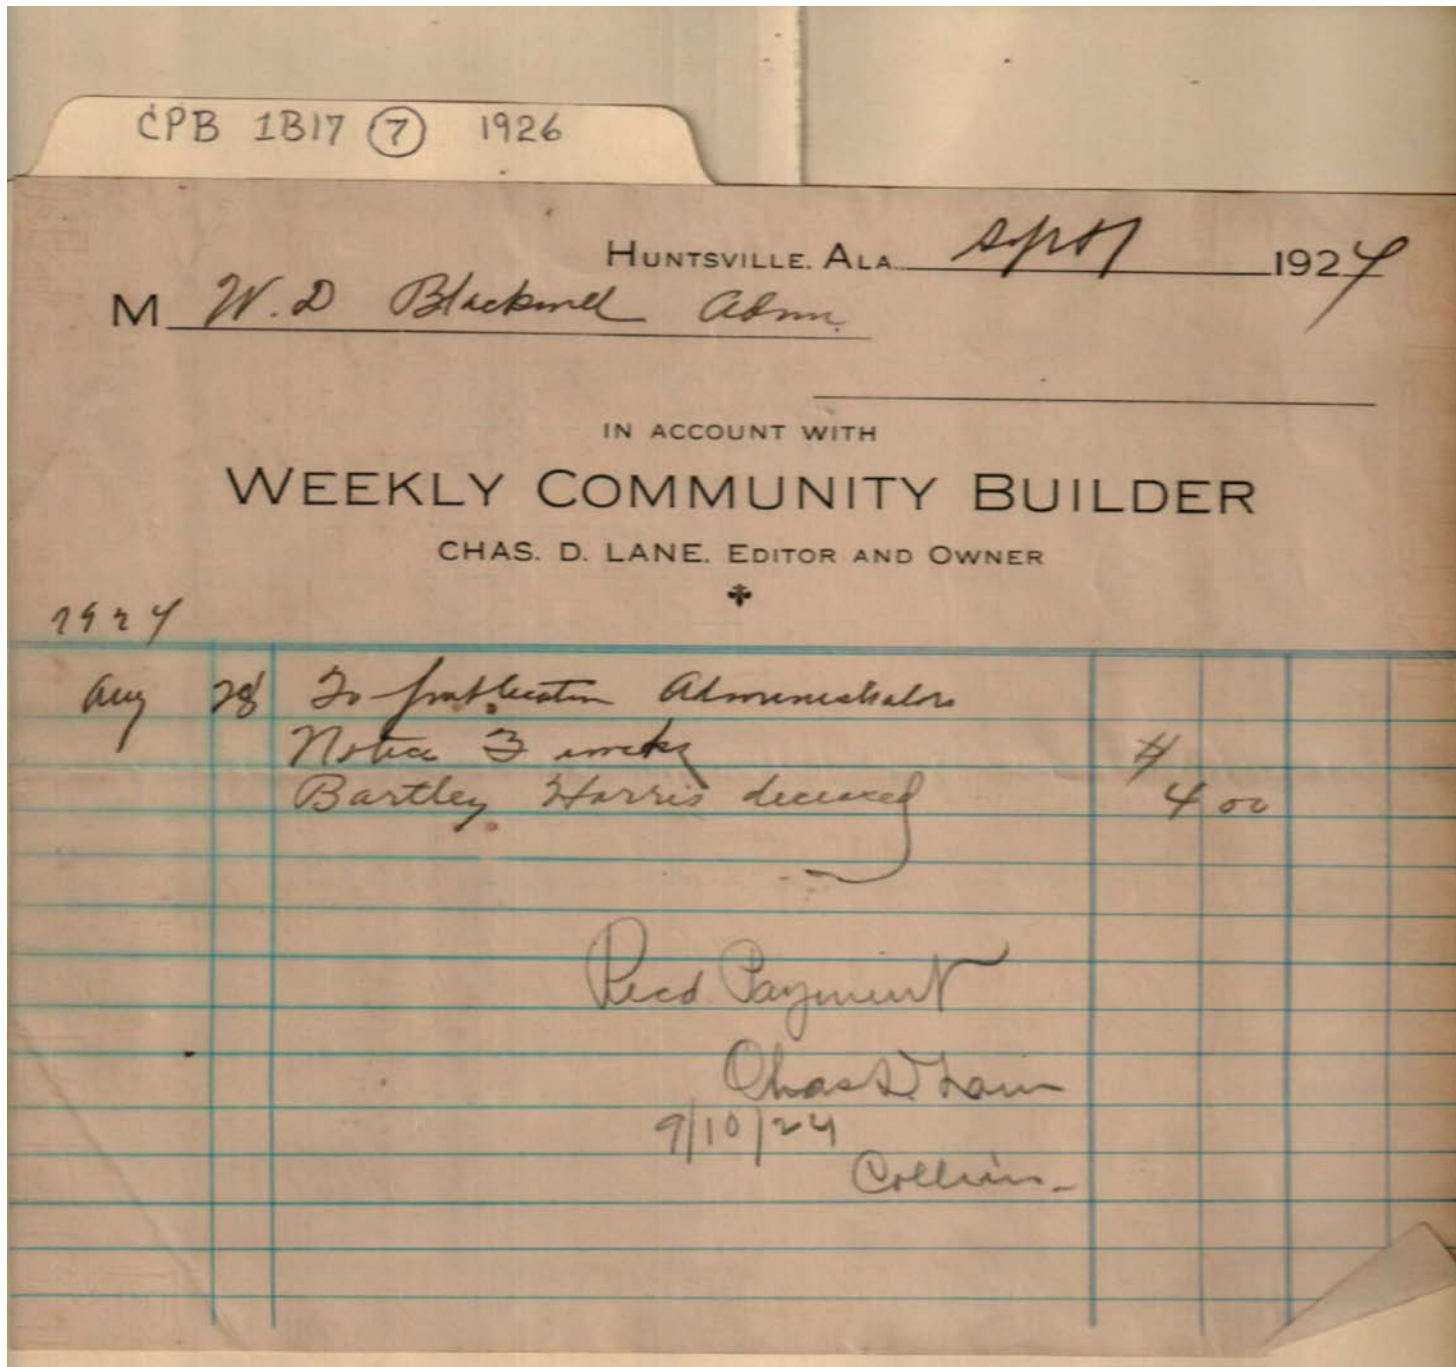 CPB 1B17 7 1926
HUNTSVILLE, ALA. Sept 1 1924
M W. D Blackwell Admr.
IN ACCOUNT WITH
WEEKLY COMMUNITY BUILDER
CHAS. D. LANE, EDITOR AND OWNER
1924
Aug 28 To publication Administrators
Notice 3 weeks $
Bartley Harris deceased 4 00
Recd Payment
Chas D Lane
9/10/24
Collins